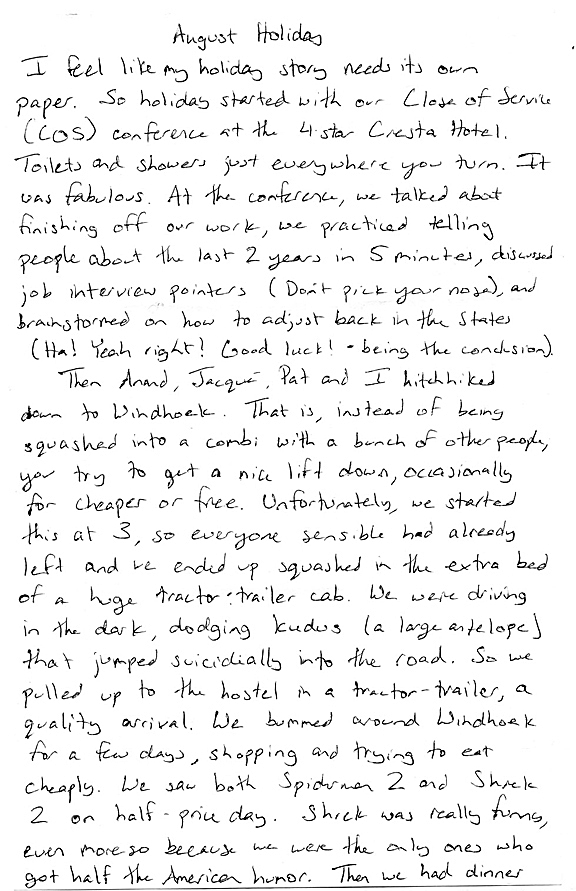 August Holiday
I feel like my holiday story needs its own
paper. So holiday started with our Close of Service
(COS) conference at the 4 star Cresta Hotel.
Toilets and showers just everywhere you turn. It
was fabulous. At the conference, we talked about
finishing off our work, we practiced telling
people about the last 2 years in 5 minutes, discussed
job interview pointers (Don't pick your nose), and
brainstormed on how to adjust back in the States
(Ha! Yeah right! Good luck! - being the conclusion).
Then Anand, Jacque, Pat and I hitchhiked
down to Windhoek. That is, instead of being
squashed into a combi with a bunch of other people,
you try to get a nice lift down, occasionally
for cheaper or free. Unfortunately, we started
this at 3, so everyone sensible had already
left and we ended up squashed in the extra bed
of a huge tractor-trailer cab. We were driving
in the dark, dodging kudus (a large antelope)
that jumped suicidially into the road. So we
pulled up to the hostel in a tractor-trailer, a
quality arrival. We bummed around Windhoek
for a few days, shopping and trying to eat
cheaply. We saw both Spiderman 2 and Shrek
2 on half-price day. Shrek was really funny,
even more so because we were the only ones who
got half the American humor. Then we had dinner